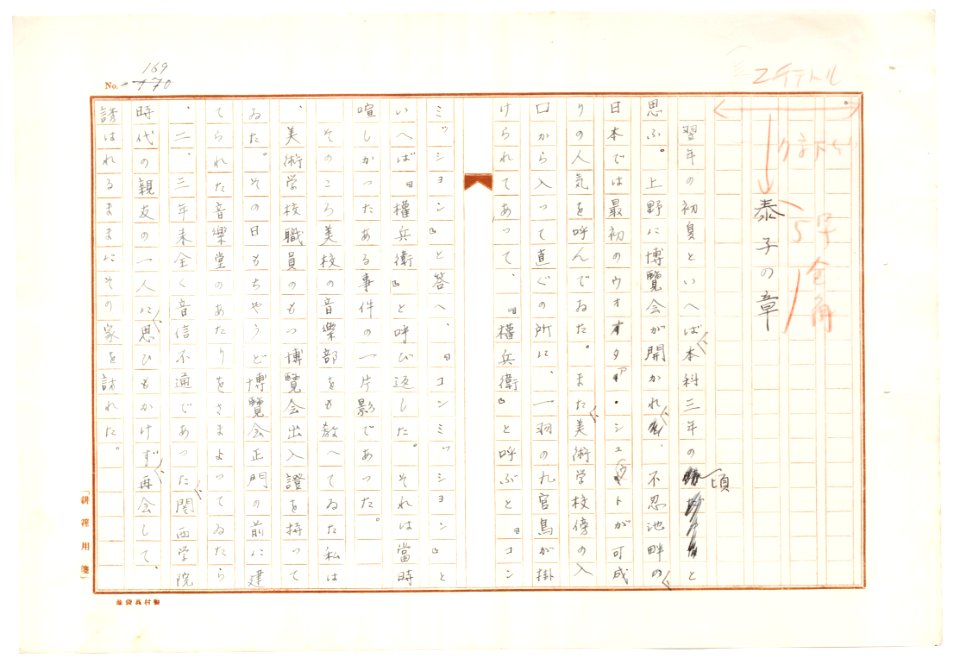 169
No. 170
2 チテトル
5字
全角
泰子の章
翌年の初夏といへば本科三年の頃と
思ふ。上野に博覧会が開かれ、不忍池畔の
日本では最初のウオオタア・シュートが可成
りの人気を呼んでゐた。また美術学校傍の入
口から入つて直ぐの所に、一羽の九官鳥が掛
けられてあつて、『權兵衛』と呼ぶと『コン
ミッション』と答へ、『コンミッション』と
いへば『權兵衛』と呼び返した。それは當時
喧しかつたある事件の一片影であつた。
そのころ美校の音楽部をも教へてゐた私は
、美術学校職員のもつ博覧会出入證を持つて
ゐた。その日もちやうど博覧会正門の前に建
てられた音樂堂のあたりをさまよつてゐたら
、二、三年来全く音信不通であつた関西学院
時代の親友の一人に思ひもかけず再会して、
誘はれるままにその家を訪れた。
「耕筰用箋」